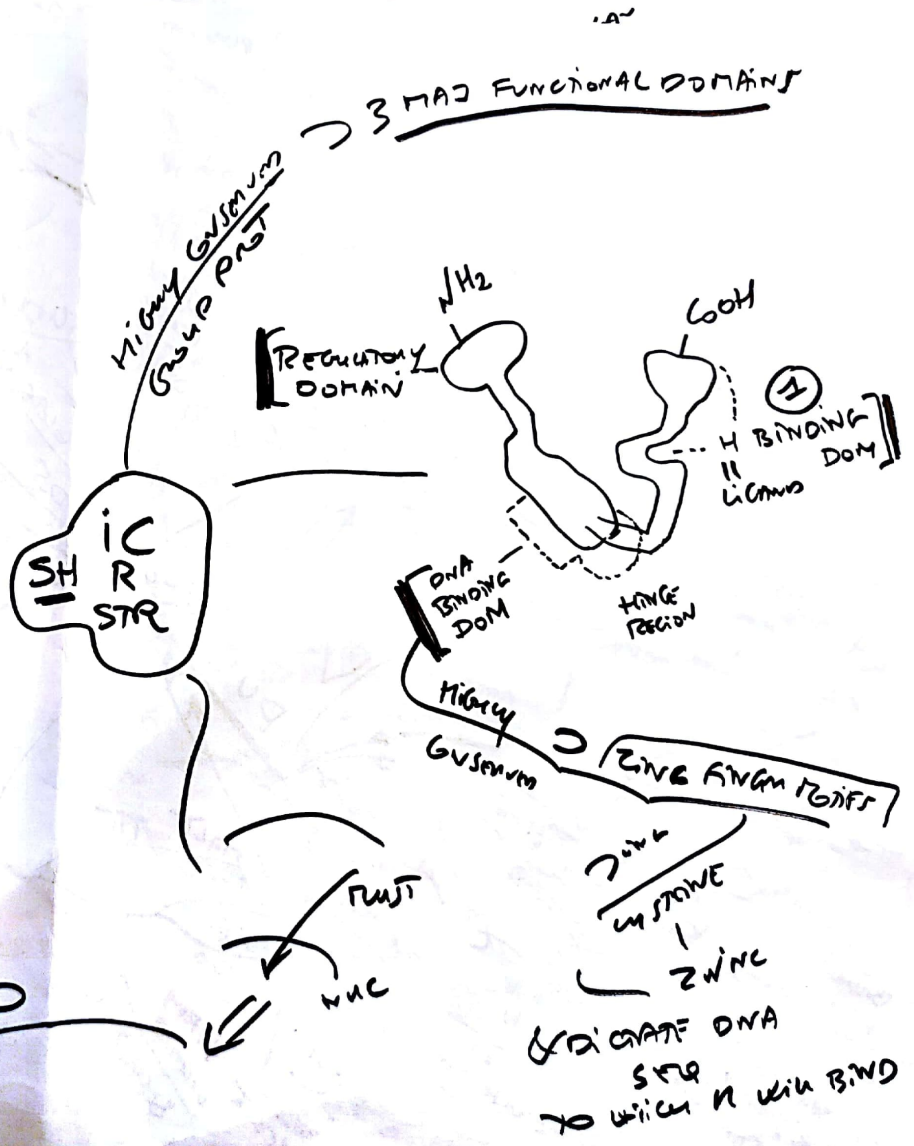 3 MAJ FUNCTIONAL DOMAINS
HIGHLY CONSERVED
GROUP PROT
NH2
COOH
REGULATORY
DOMAIN
1
H BINDING
DOM
LIGAND
iC
SH R
STR
DNA
BINDING
DOM
HINGE
REGION
HIGHLY
CONSERVED
ZINC FINGER MOTIFS
CYSTEINE
ZINC
MUST
NUC
& DICTATE DNA
SEQ
TO WHICH R WILL BIND